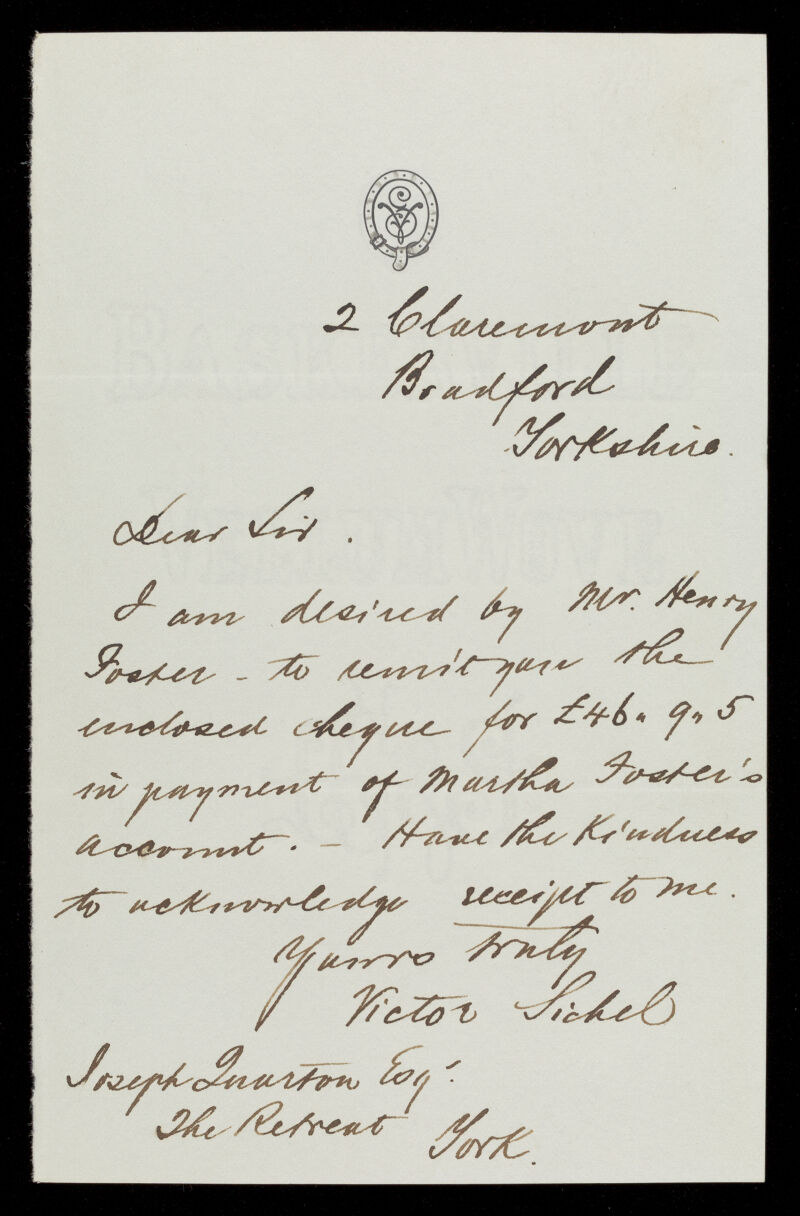 2 Claremont
Bradford
Yorkshire.
Dear Sir.
I am desired by Mr. Henry
Foster - to remit you the
enclosed cheque for £46" 9" 5
in payment of Martha Foster's
account. - Have the Kindness
to acknowledge receipt to me.
Yours truly
Victor Sichel
Joseph Quarton Esqr.
The Retreat York.